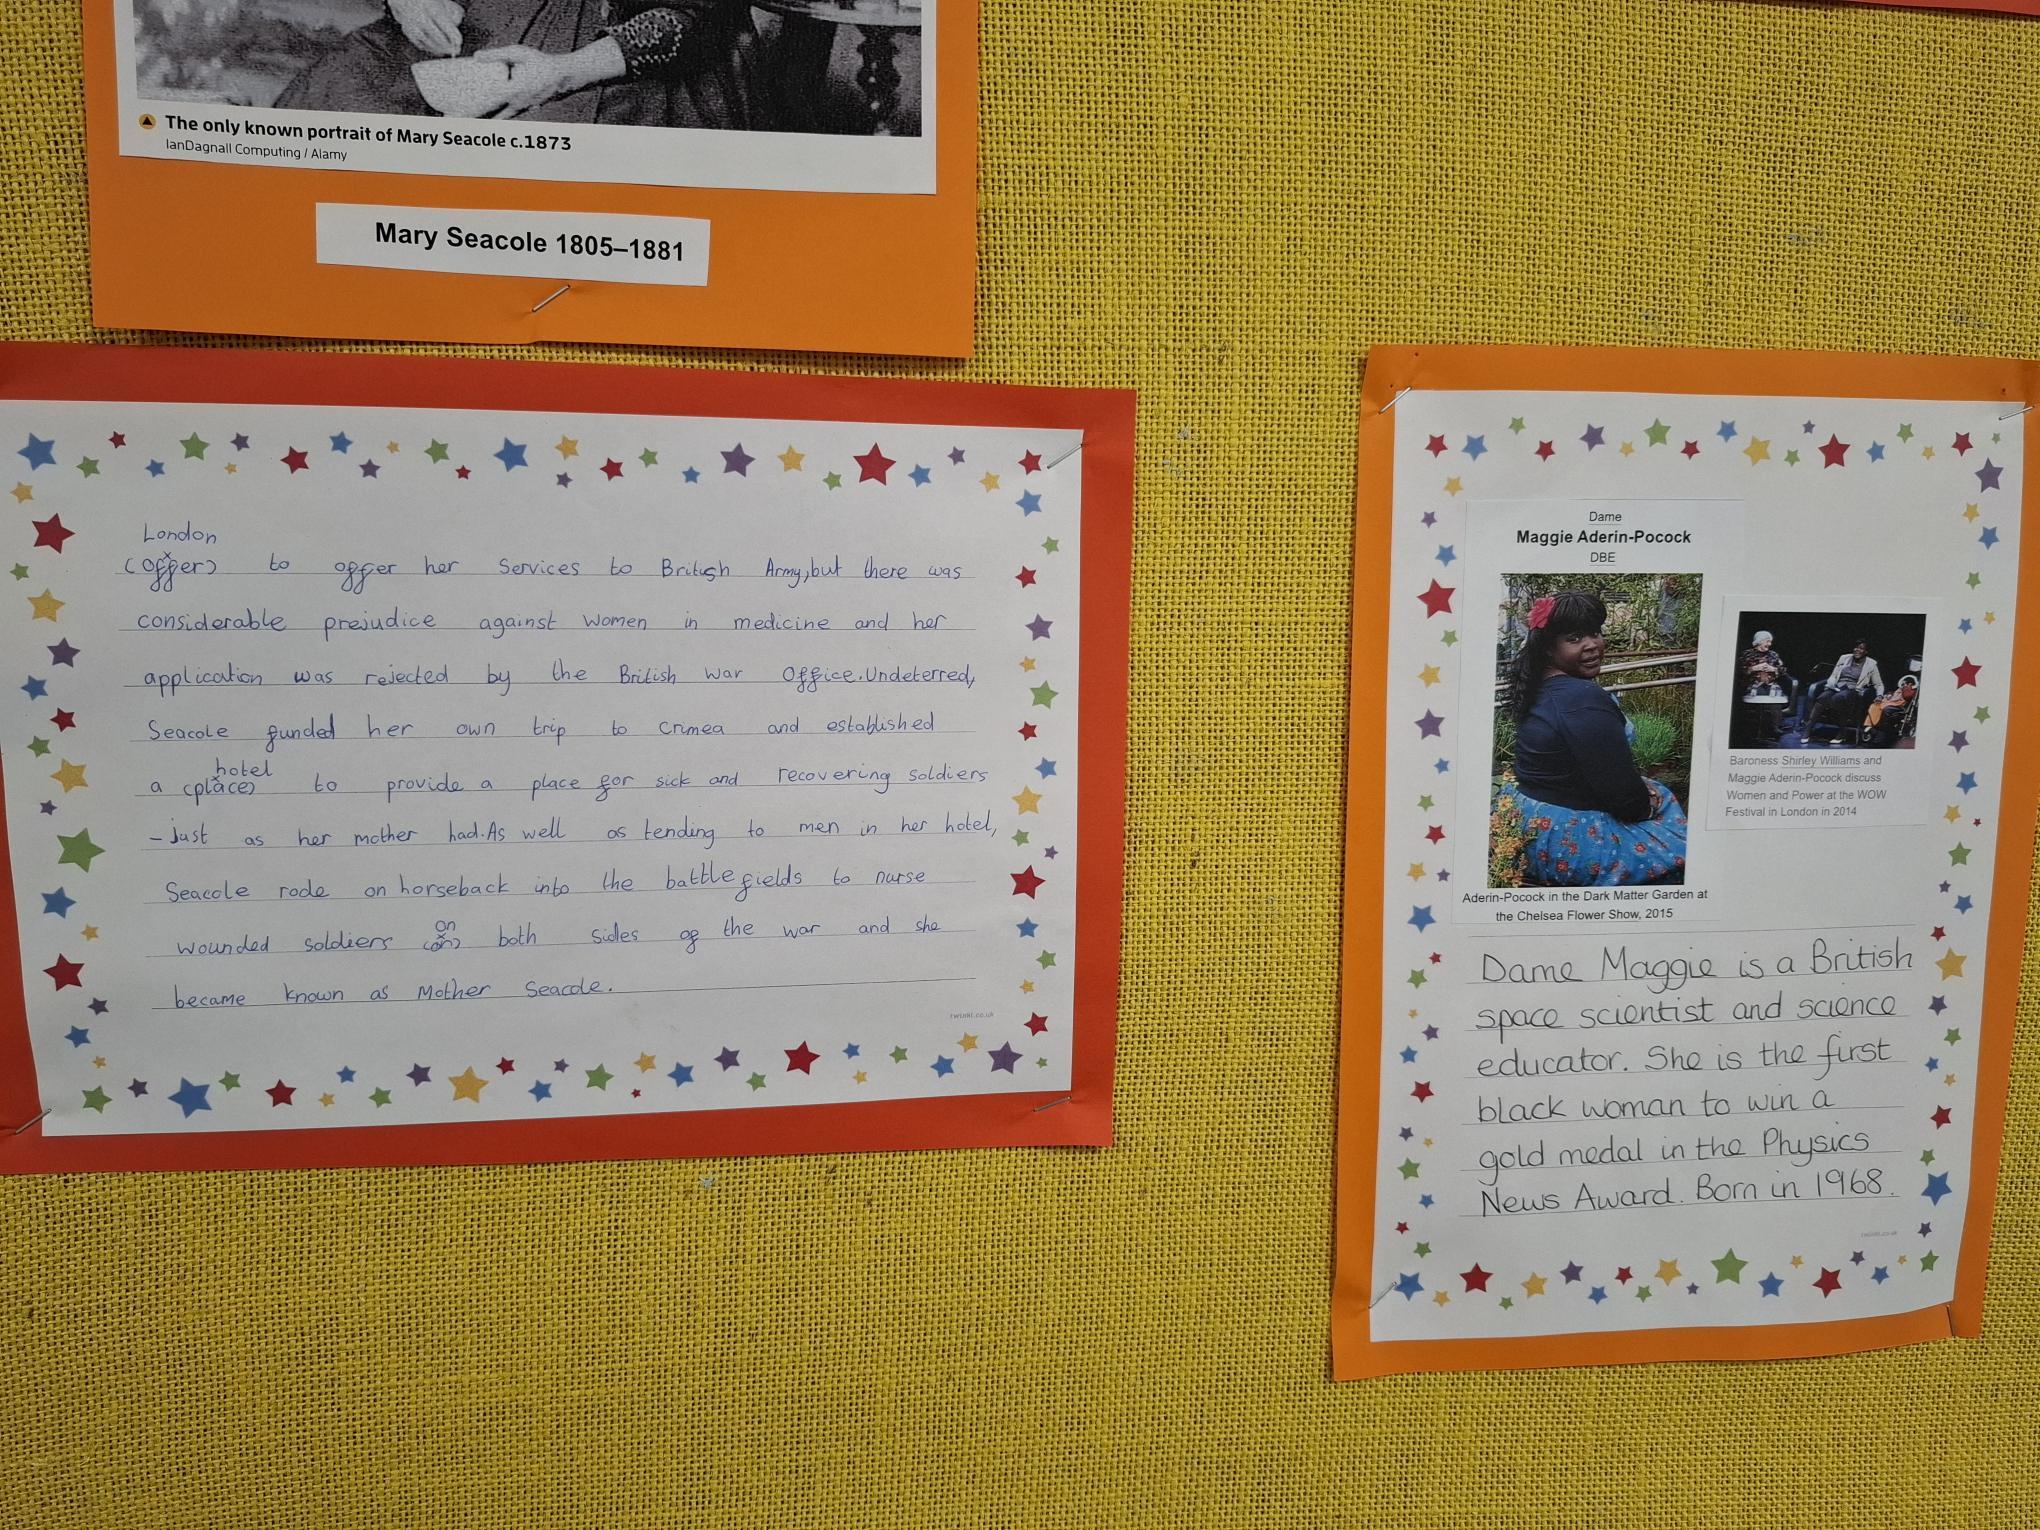 The only known portrait of Mary Seacole c.1873
IanDagnall Computing / Alamy
Mary Seacole 1805–1881
London
(offer) to offer her Services to British Army, but there was
considerable prejudice against women in medicine and her
application was rejected by the British war Office. Undeterred,
Seacole funded her own trip to Crimea and established
hotel
a (place) to provide a place for sick and recovering soldiers
- just as her mother had. As well as tending to men in her hotel,
Seacole rode on horseback into the battlefields to nurse
on
wounded soldiers (on) both sides of the war and she
became known as Mother Seacole.
twinkl.co.uk
Dame
Maggie Aderin-Pocock
DBE
Baroness Shirley Williams and
Maggie Aderin-Pocock discuss
Women and Power at the WOW
Festival in London in 2014
Aderin-Pocock in the Dark Matter Garden at
the Chelsea Flower Show, 2015
Dame Maggie is a British
space scientist and science
educator. She is the first
black woman to win a
gold medal in the Physics
News Award. Born in 1968.
twinkl.co.uk